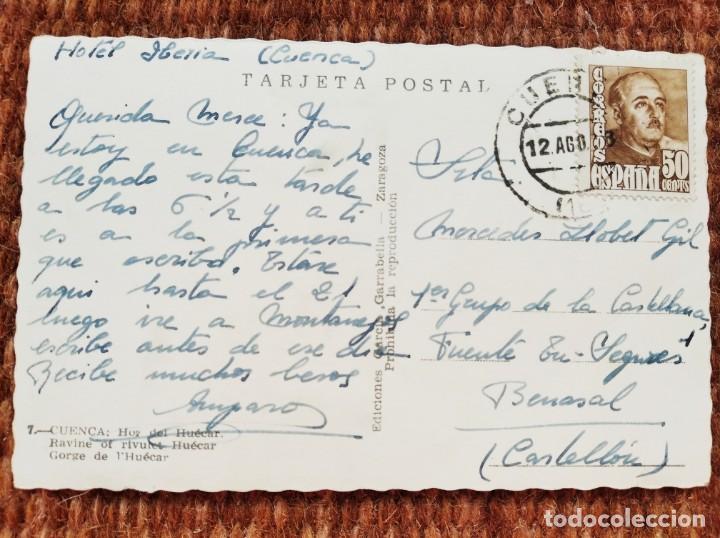 Hotel Iberia (Cuenca)
TARJETA POSTAL
Querida Merce: Ya
estoy en Cuenca, he
llegado esta tarde
a las 6 1/2 y a ti
es a la primera
que escribo. Estare
aqui hasta el 21
luego ire a Montanejos
escribe antes de ese dia
Recibe muchos besos
Amparo
7.—CUENCA: Hoz del Huécar.
Ravine of rivulet Huécar
Gorge de l'Huécar
Ediciones García Garrabella — Zaragoza
Prohibida la reproducción
CUEN
12.AGO.
CORREOS
ESPAÑA
50
CENTS
Srta
Mercedes Llobet Gil
1er Grupo de la Castellana,
Fuente En-Segures
Benasal
(Castellón)
todocoleccion.net